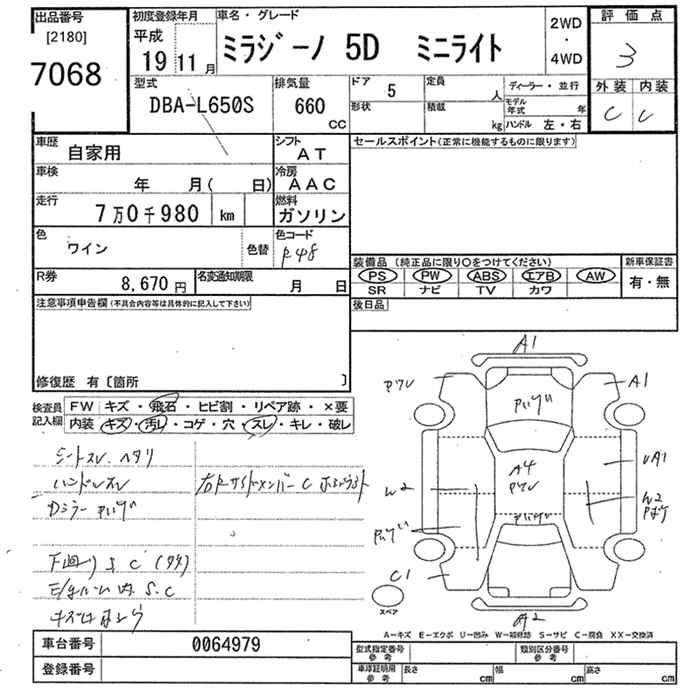 出品番号 初度登録年月 車名・グレード 評価点
[2180] 平成 2WD
7068 19 年 11 月 ミラジーノ 5D ミニライト ・ 3
4WD
型式 排気量 ドア 5 定員 人 ディーラー・並行 外装 内装
DBA-L650S 660 CC 形状 積載 kg モデル年式 年 C C
ハンドル 左・右
車歴 自家用 シフト AT セールスポイント(正常に機能するものに限ります)
車検 年 月( 日) 冷房 AAC
走行 7万0千980 km 燃料 ガソリン
色 ワイン 色替 色コード R48
装備品 (純正品に限り○をつけてください) 新車保証書
R券 8,670円 名変通知期限 月 日 PS PW ABS エアB AW 有・無
SR ナビ TV カワ
注意事項申告欄(不具合内容等は具体的に記入して下さい) 後日品
修復歴 有〔箇所 〕
検査員記入欄 FW キズ・飛石・ヒビ割・リペア跡・×要
内装 キズ・汚レ・コゲ・穴・スレ・キレ・破レ
A1
A1
シートスレ ヘタリ
ハンドルスレ
A4
UA1
W2
W2
下廻りS C
C1
A2
スペア
A-キズ E-エクボ U-凹み W-補修跡 S-サビ C-腐食 XX-交換済
車台番号 0064979 型式指定番号 参考 類別区分番号 参考
登録番号 車庫証明用 参考 長さ cm 幅 cm 高さ cm